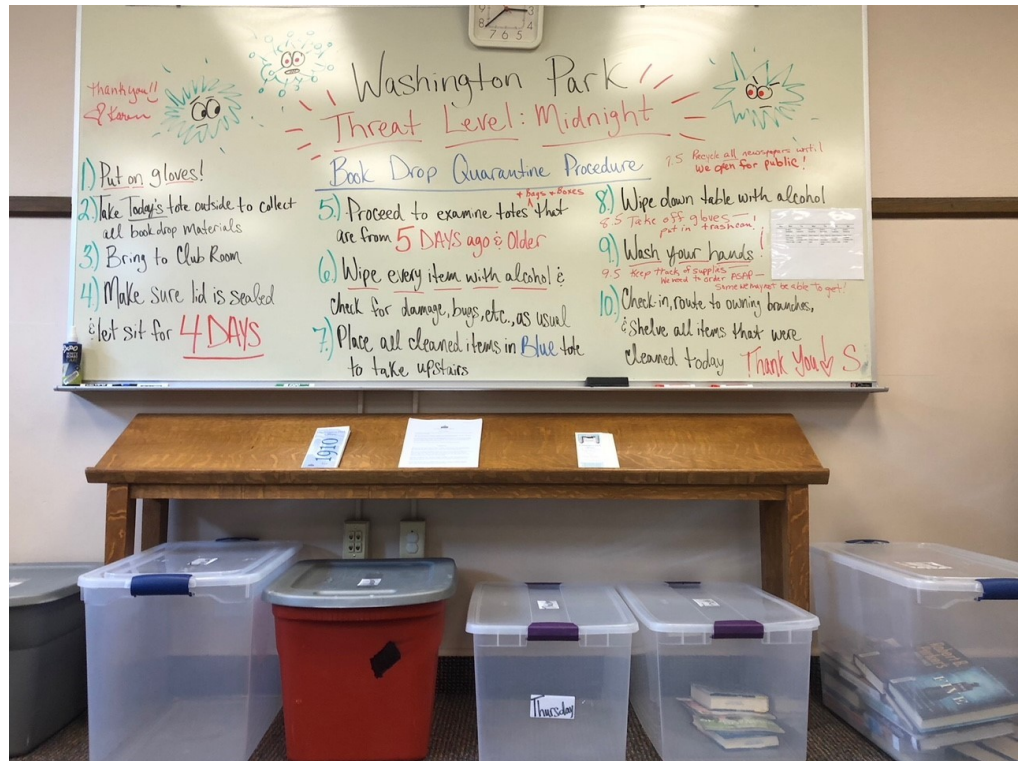 Washington Park
Threat Level: Midnight
Book Drop Quarantine Procedure
Thank you!!
Karen
1) Put on gloves!
2) Take Today's tote outside to collect
all bookdrop materials
3) Bring to Club Room
4) Make sure lid is sealed
& let it sit for 4 DAYS
+ Bags + Boxes
5) Proceed to examine totes ^ that
are from 5 DAYS ago & Older
6) Wipe every item with alcohol &
check for damage, bugs, etc., as usual
7) Place all cleaned items in Blue tote
to take upstairs
7.5 Recycle all newspapers until
we open for public!
8) Wipe down table with alcohol
8.5 Take off gloves—
put in trashcan!
9) Wash your hands!
9.5 Keep track of supplies
We need to order ASAP—
Some we may not be able to get!
10) Check-in, route to owning branches,
& shelve all items that were
cleaned today
Thank You S
EXPO
1910
Thursday
FIVE